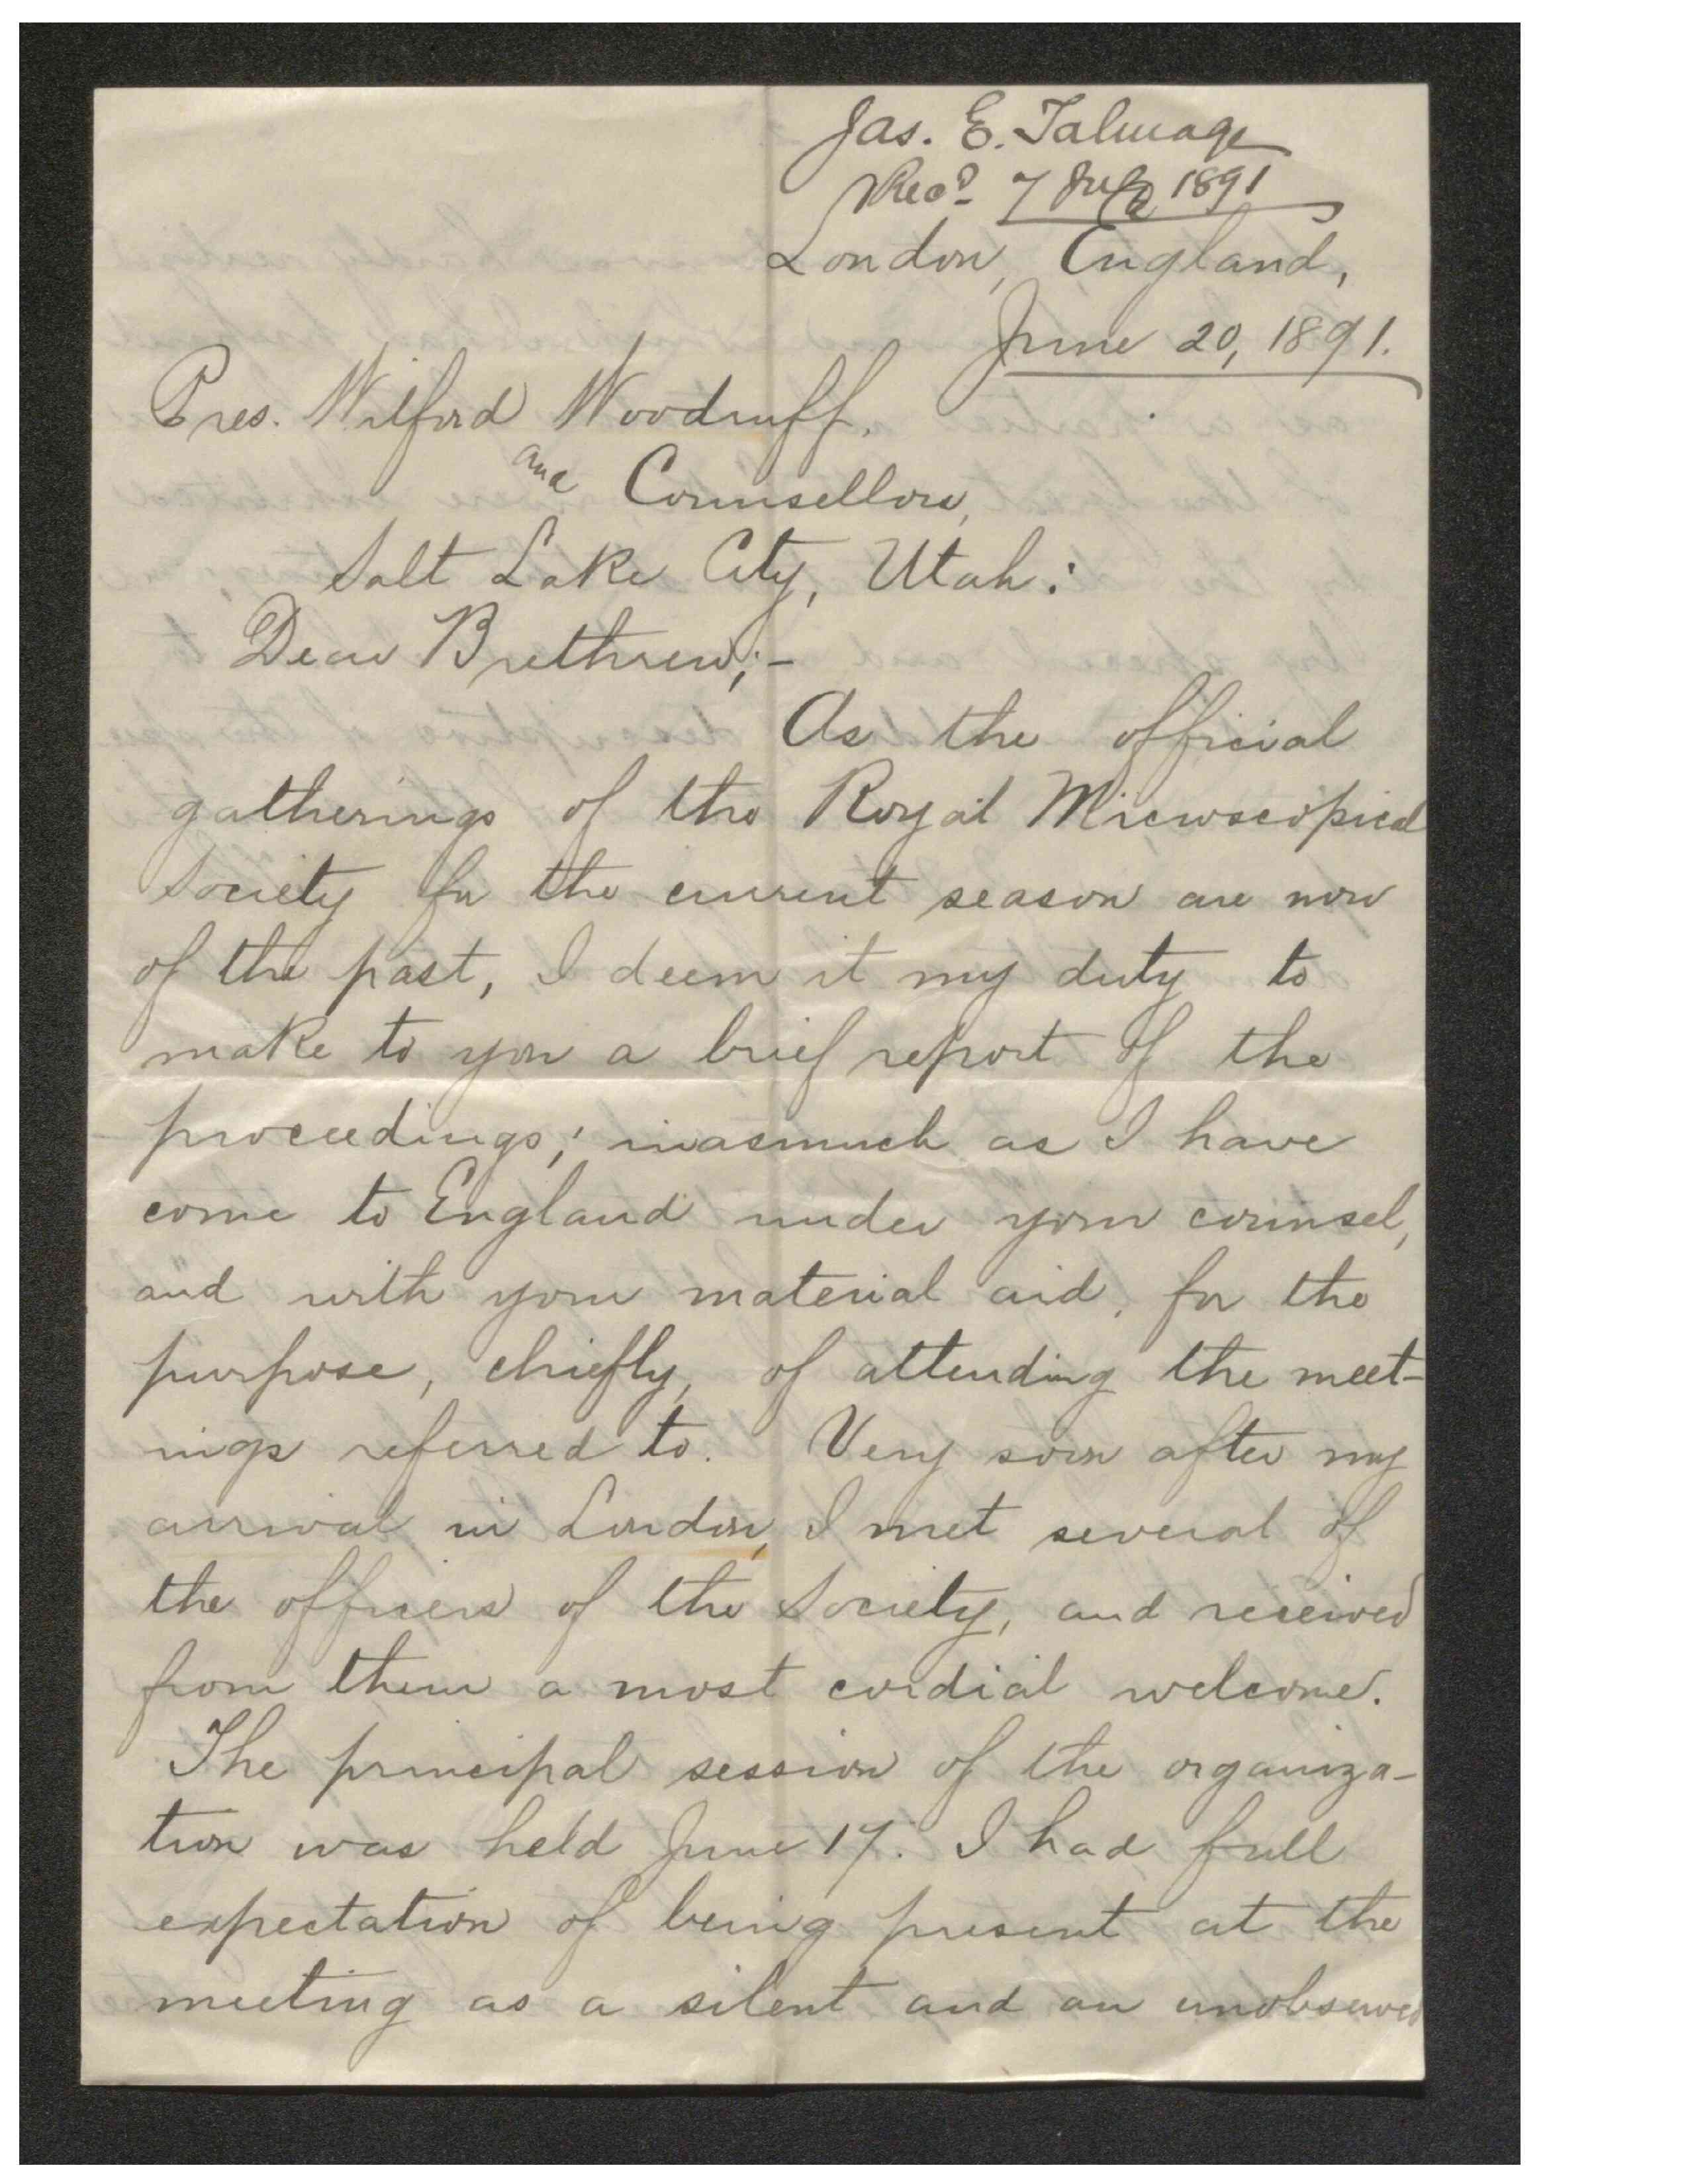 Jas. E. Talmage
Rec'd 7 July 1891
London, England,
June 20, 1891.
Pres. Wilford Woodruff.
and Counsellors,
Salt Lake City, Utah:
Dear Brethren;-
As the official
gatherings of the Royal Microscopical
Society for the current season are now
of the past, I deem it my duty to
make to you a brief report of the
proceedings; inasmuch as I have
come to England under your counsel,
and with your material aid, for the
purpose, chiefly, of attending the meet-
ings referred to. Very soon after my
arrival in London, I met several of
the officers of the Society, and received
from them a most cordial welcome.
The principal session of the organiza-
tion was held June 17. I had full
expectation of being present at the
meeting as a silent and an unobserved